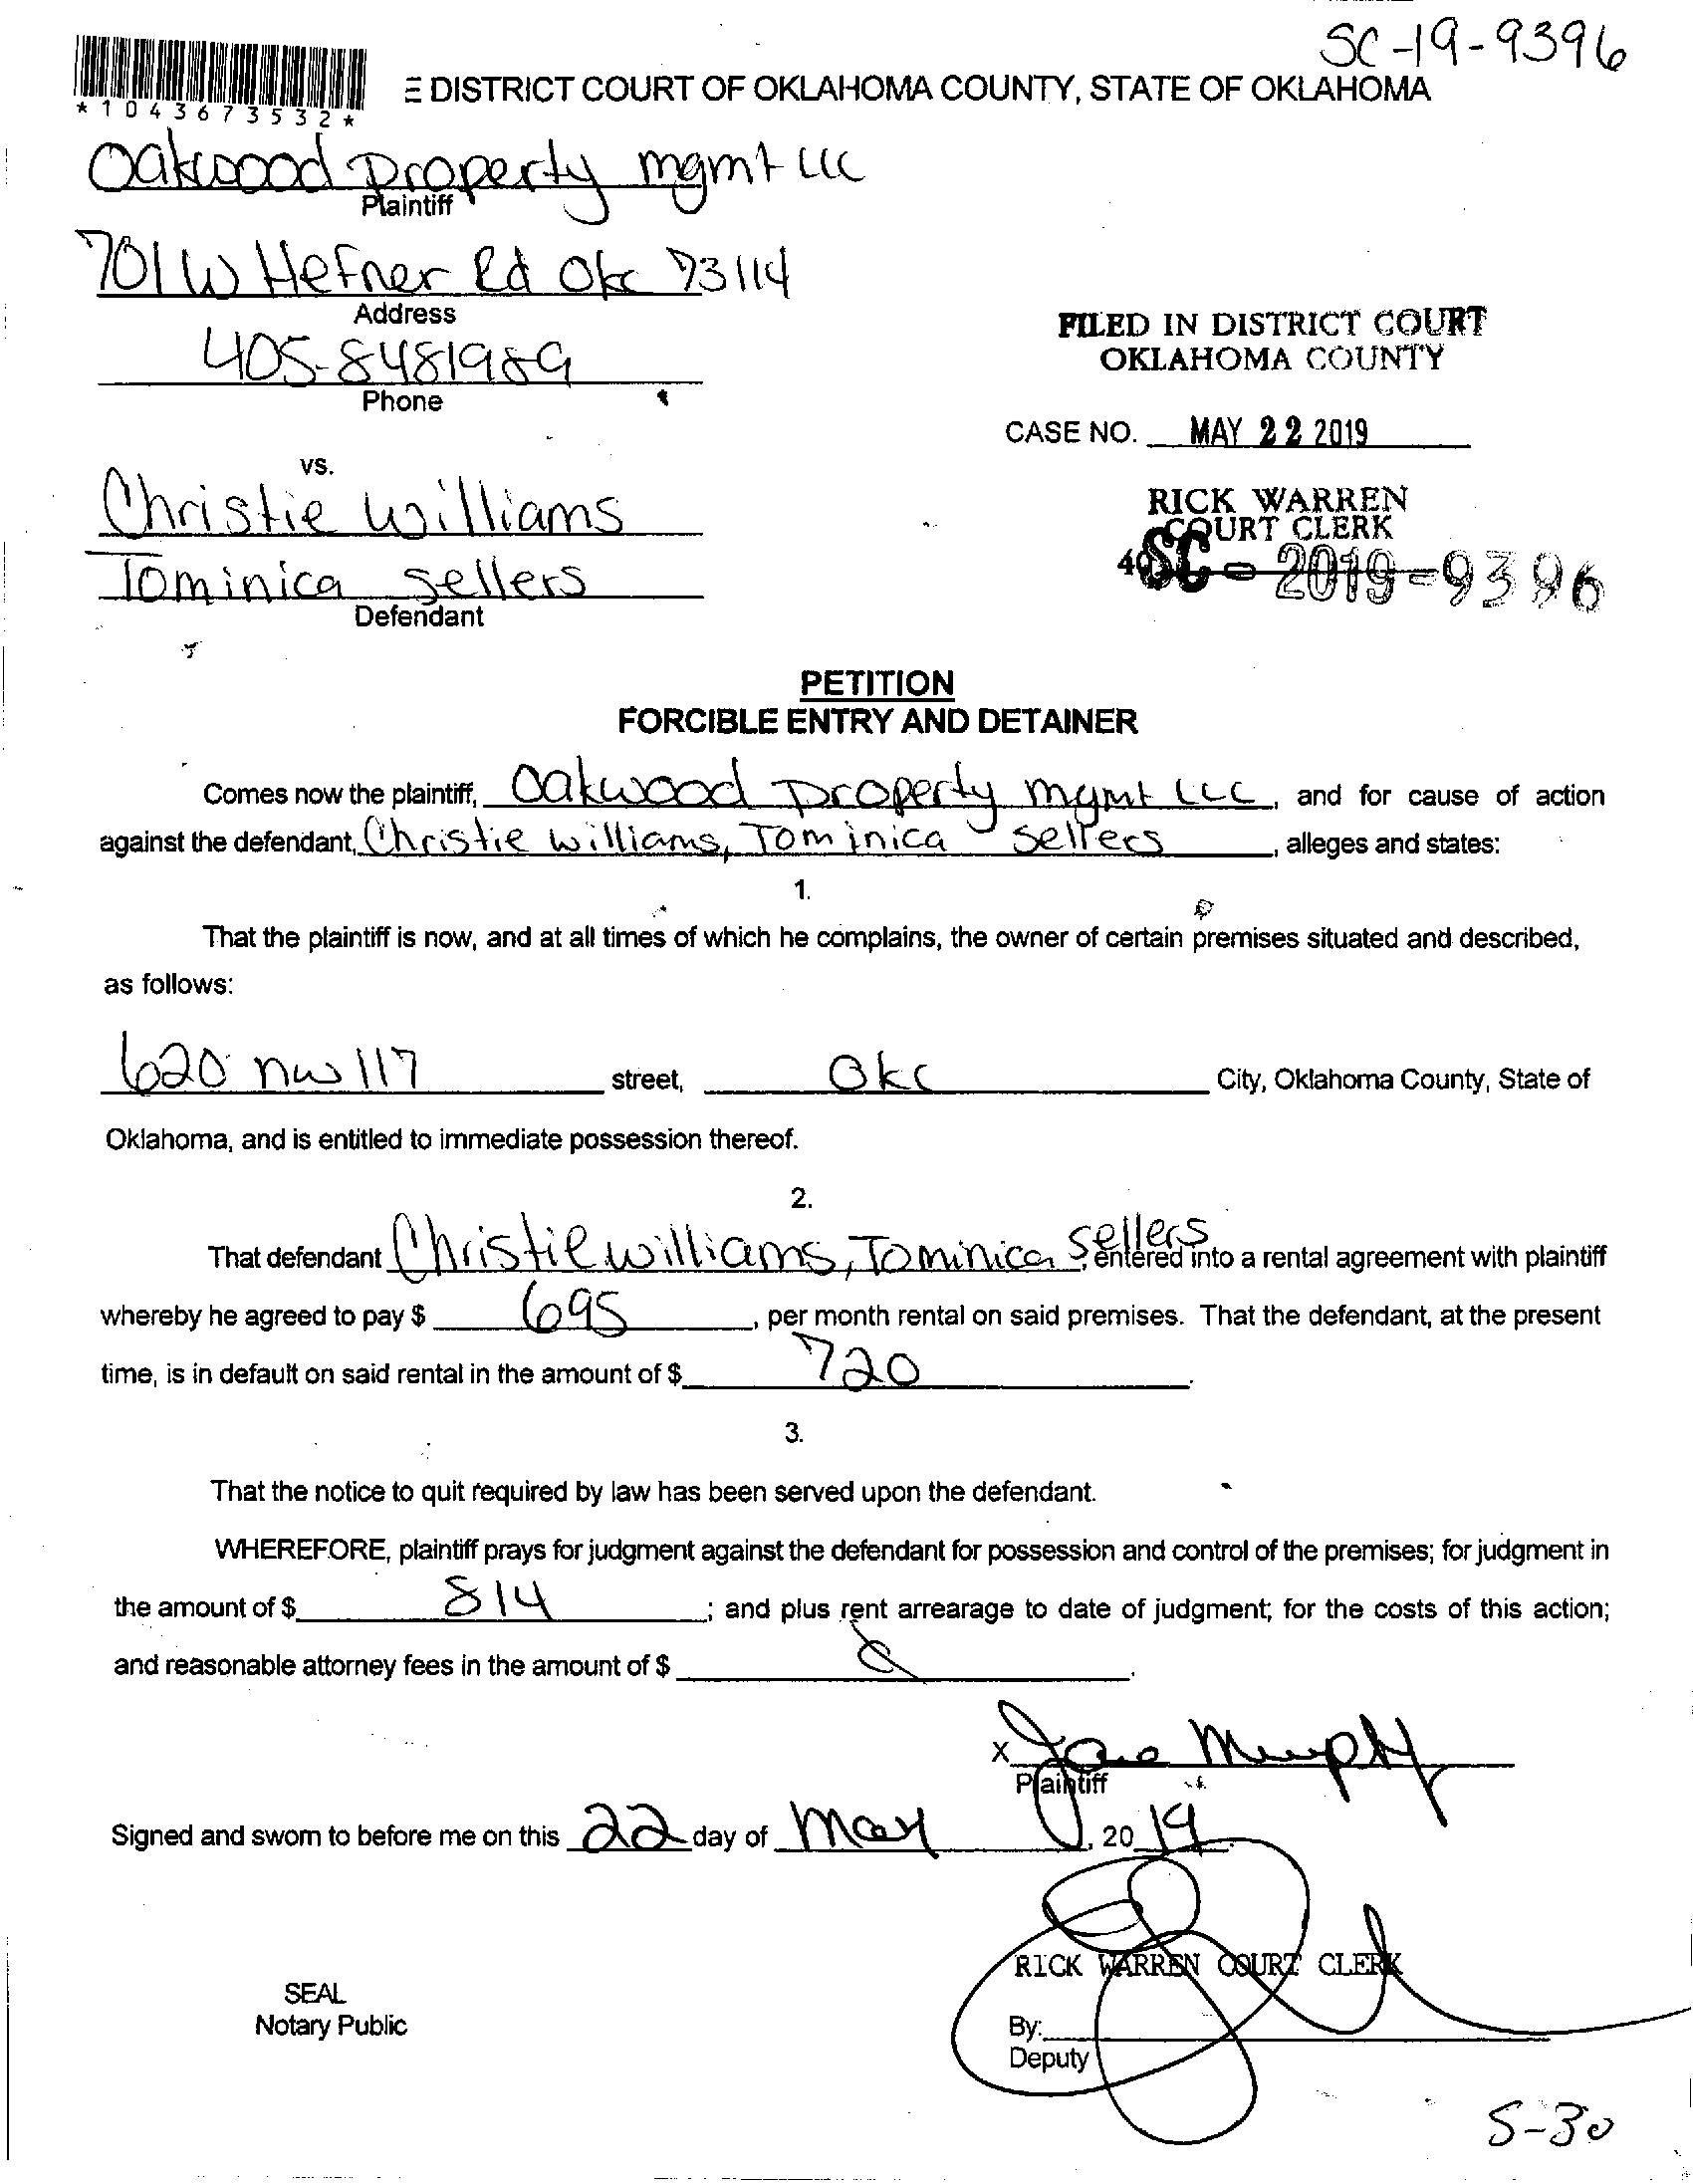 SC-19-9396
*1043673532*
E DISTRICT COURT OF OKLAHOMA COUNTY, STATE OF OKLAHOMA
Oakwood Property mgmt LLC
Plaintiff
701 W Hefner Rd Okc 73114
Address
405-8481989
Phone
FILED IN DISTRICT COURT
OKLAHOMA COUNTY
CASE NO. MAY 22 2019
vs.
Christie Williams
RICK WARREN
COURT CLERK
Tominica Sellers
SC - 2019-9396
Defendant
PETITION
FORCIBLE ENTRY AND DETAINER
Comes now the plaintiff, Oakwood Property mgmt LLC, and for cause of action
against the defendant, Christie Williams, Tominica Sellers, alleges and states:
1.
That the plaintiff is now, and at all times of which he complains, the owner of certain premises situated and described,
as follows:
620 nw 117 street, Okc City, Oklahoma County, State of
Oklahoma, and is entitled to immediate possession thereof.
2.
That defendant Christie Williams, Tominica Sellers, entered into a rental agreement with plaintiff
whereby he agreed to pay $ 695, per month rental on said premises. That the defendant, at the present
time, is in default on said rental in the amount of $ 720.
3.
That the notice to quit required by law has been served upon the defendant.
WHEREFORE, plaintiff prays for judgment against the defendant for possession and control of the premises; for judgment in
the amount of $ 814; and plus rent arrearage to date of judgment; for the costs of this action;
and reasonable attorney fees in the amount of $
X Jane Murphy
Plaintiff
Signed and sworn to before me on this 22 day of May, 2019.
RICK WARREN COURT CLERK
SEAL
Notary Public
By:
Deputy
5-30